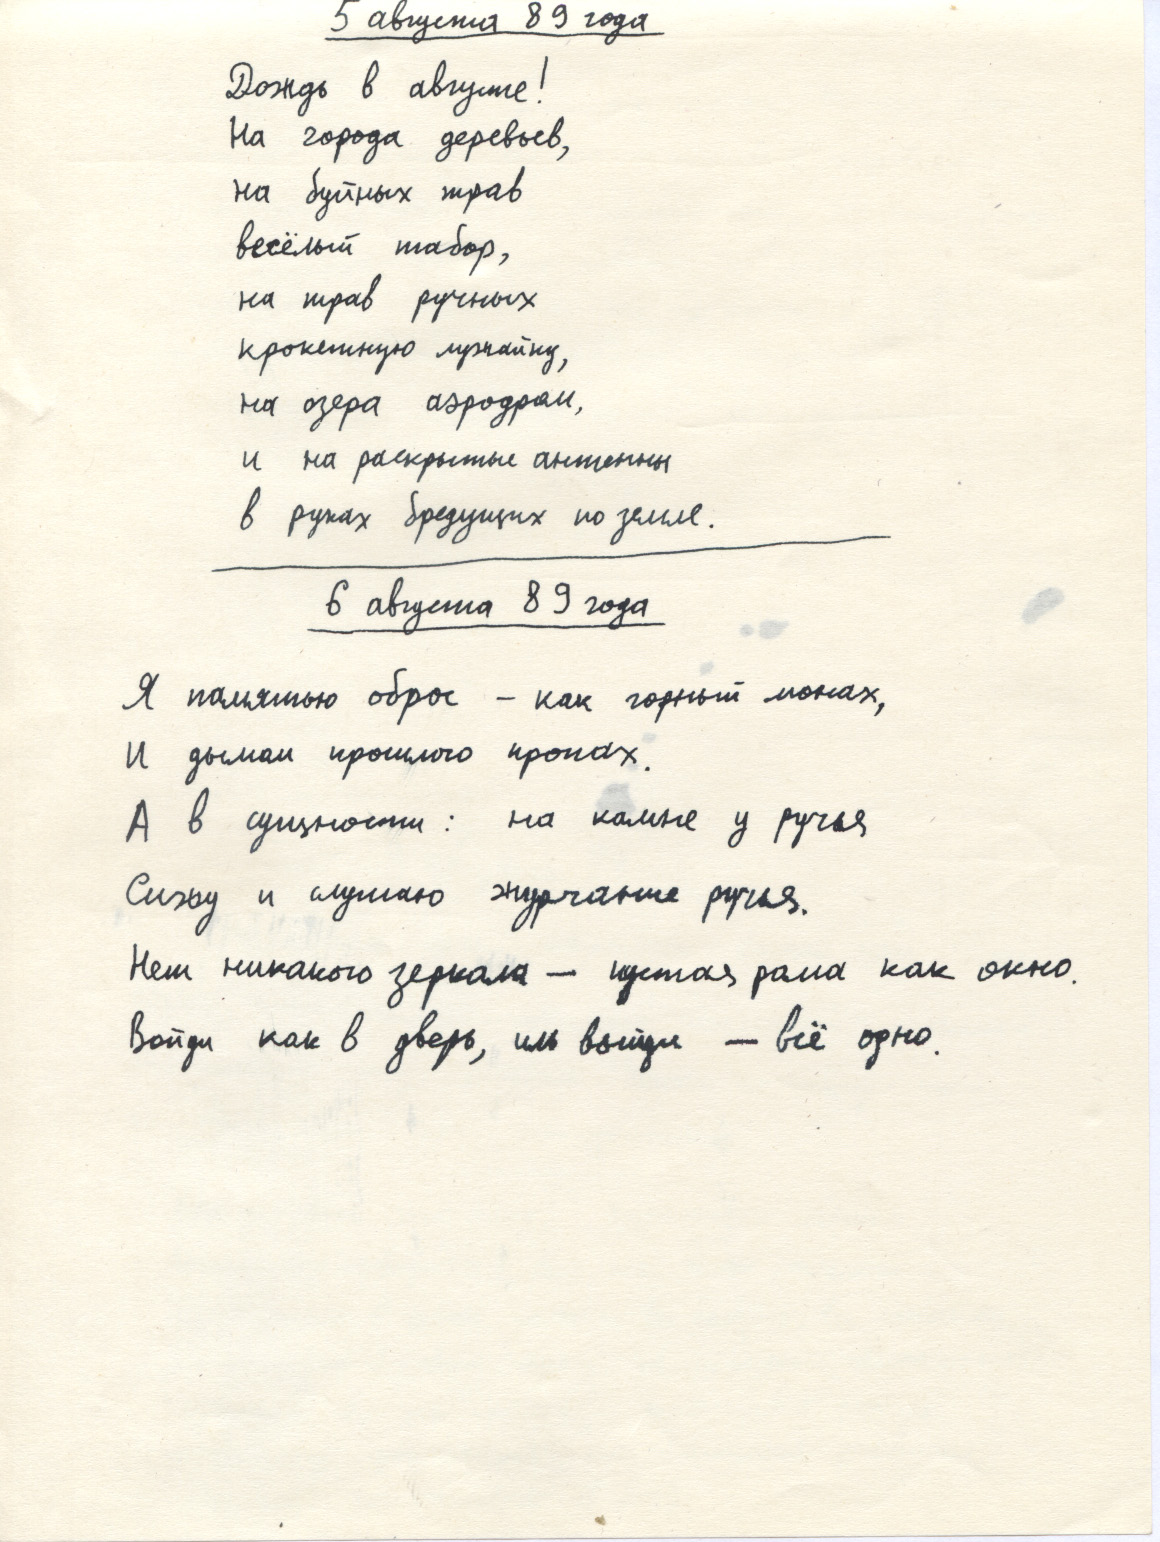 5 августа 89 года
Дождь в августе!
На города деревьев,
на буйных трав
весёлый табор,
на трав ручных
крокетную лужайку,
на озера аэродром,
и на раскрытые антенны
в руках бредущих по земле.
6 августа 89 года
Я памятью оброс – как горный монах,
И дымом прошлого пропах.
А в сущности: на камне у ручья
Сижу и слушаю журчание ручья.
Нет никакого зеркала – пустая рама как окно.
Войди как в дверь, иль выйди – всё одно.